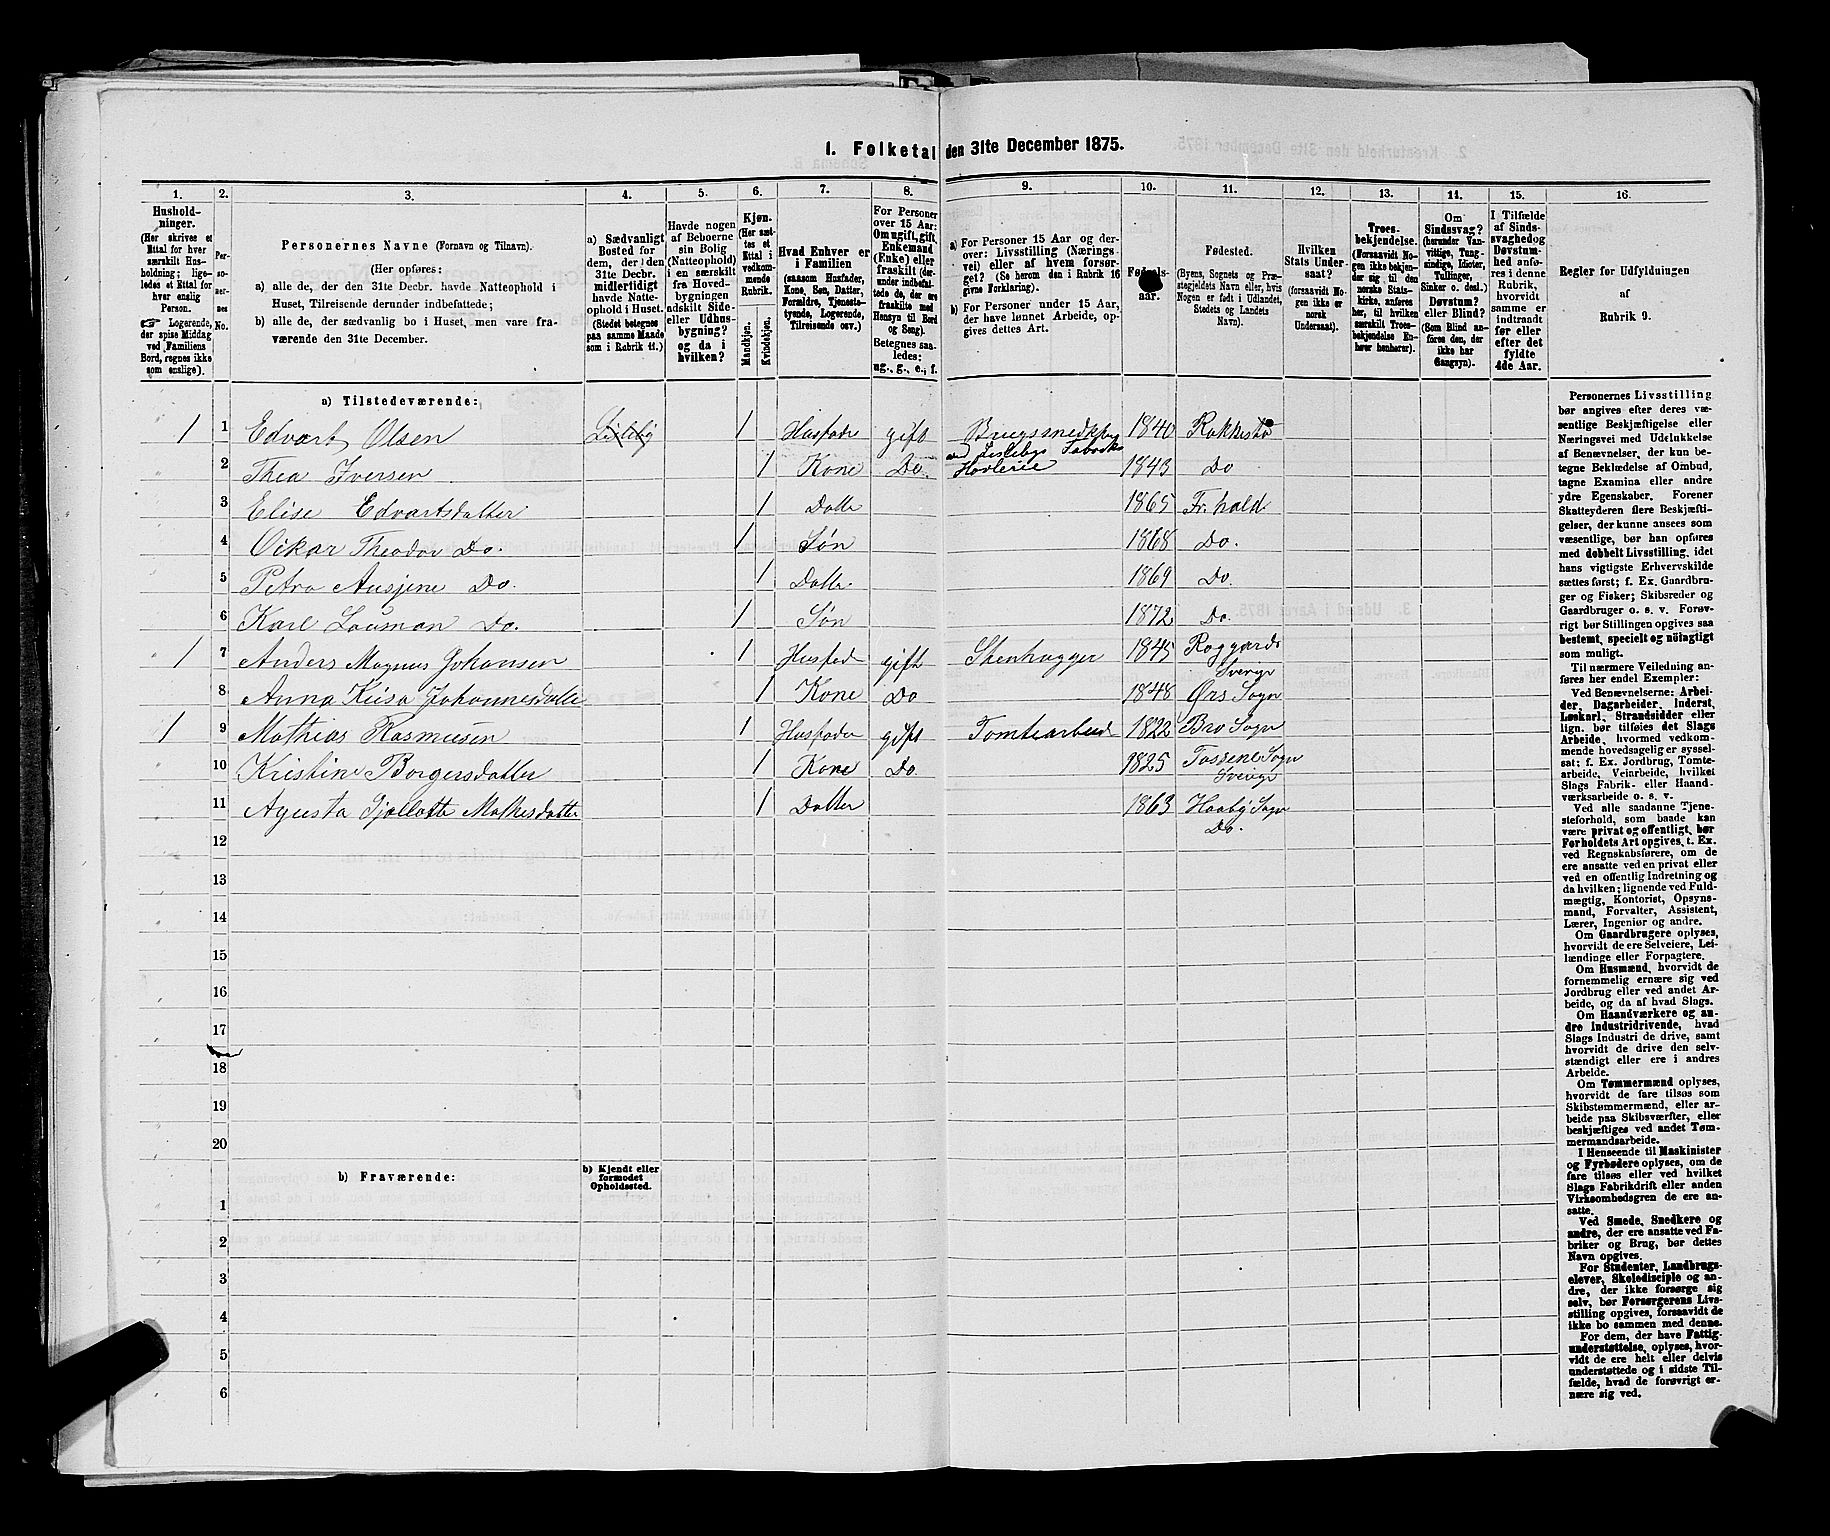 1. Folketal den 31te December 1875.
1. 2. 3. 4. 5. 6. 7. 8. 9. 10. 11. 12. 13. 14. 15. 16.
Hushold-
ninger.
(Her skrives et
Ettal for hver
særskilt Hus-
holdning; lige-
ledes et Ettal for
hver enslig
Person.
☞ Logerende,
der spise Middag
ved Familiens
Bord, regnes ikke
som enslige).
Per-
so-
ner-
nes
No.
Personernes Navne (Fornavn og Tilnavn).
(Her opføres:
a) alle de, der den 31te Decbr. havde Natteophold i
Huset, Tilreisende derunder indbefattede;
b) alle de, der sædvanlig bo i Huset, men vare fra-
værende den 31te December.
a) Sædvanligt
Bosted for
dem, der i den
31te Decbr.
midlertidigt
havde Natte-
ophold i Huset.
(Stedet betegnes
paa samme Maade
som i Rubrik 11.)
Havde nogen
af Beboerne
sin Bolig
(Natteophold)
i en særskilt
fra Hoved-
bygningen
adskilt Side-
eller Udhus-
bygning?
og da i
hvilken?
Kjøn.
(Her sæt-
tes et
Ettal i
vedkom-
mende
Rubrik.
Mandkjøn.
Kvindekjøn.
Hvad Enhver er
i Familien
(saasom Husfader,
Kone, Søn, Datter,
Forældre, Tjeneste-
tyende, Logerende,
Tilreisende osv.)
For Personer
over 15 Aar:
Om ugift, gift,
Enkemand
(Enke) eller
fraskilt (der-
under indbefat-
tede de, der ere
fraskilte med
Hensyn til Bord
og Seng).
Betegnes saa-
ledes:
ug., g., e., f.
a) For Personer 15 Aar og der-
over: Livsstilling (Nærings-
vei) eller af hvem forsør-
get? (Se herom den i Rubrik 16
givne Forklaring).
b) For Personer under 15 Aar,
der have lønnet Arbeide, op-
gives dettes Art.
Fødsels-
aar.
Fødested.
(Byens, Sognets og Præ-
stegjeldets Navn eller, hvis
Nogen er født i Udlandet,
Stedets og Landets
Navn).
Hvilken
Stats Under-
saat?
(forsaavidt No-
gen ikke er
norsk
Undersaat).
Troes-
bekjendelse.
(Forsaavidt No-
gen ikke bekjen-
der sig til den
norske Stats-
kirke, anføres
her, til hvilken
særskilt Troes-
bekjendelse En-
hver henhører).
Om
Sindssvag?
(herunder Van-
vittige, Tung-
sindige, Idioter,
Tullinger,
Sinker o. desl.)
Døvstum?
eller Blind?
(Som Blind an-
føres den, der
ikke har
Gangsyn).
I Tilfælde
af Sinds-
svaghed og
Døvstum-
hed anfø-
res i denne
Rubrik,
hvorvidt
samme er
indtraadt
før eller
efter det
fyldte
4de Aar.
Regler før Udfyldningen
af
Rubrik 9.
a) Tilstedeværende:
1 1 Edvart Olsen 1 Husfader gift Brugssnedker 1840 Rakkestad
ved Lislebys Fabriks
2 Thea Iversen 1 Kone Do. Høvlerie 1843 Do
3 Elise Edvartsdatter 1 Datter 1865 Fr.hald
4 Oskar Theodor Do. 1 Søn 1868 Do.
5 Petra Do. 1 Datter. 1869 Do.
6 Karl Do. 1 Søn 1872 Do.
1 7 Anders Magnus Johansen 1 Husfad gift Stenhugger 1845
Sverige
8 Anna Johannesdatte 1 Kone Do 1848 Ørs Sogn
1 9 Mathias Rasmusen 1 Husfader gift Tomtearbeid 1822 Bro Sogn
10 Kristine Borgersdatter 1 Kone Do. 1825 Tossene Sogn
Sverige
11 Agusta 1 Datter 1863 Haaby Sogn
Do.
12
13
14
15
16
17
18
19
20
b) Fraværende:
b) Kjendt eller
formodet
Opholdssted.
1
2
3
4
5
6
Personernes Livsstilling
bør angives efter deres væ-
sentlige Beskjæftigelse eller
Næringsvei med Udelukkelse
af Benævnelser, der kun be-
tegne Beklædelse af Ombud,
tagne Examina eller andre
ydre Egenskaber. Forener
Skatteyderen flere Beskjæfti-
gelser, der kunne ansees som
væsentlige, bør han opføres
med dobbelt Livsstilling, idet
hans vigtigste Erhvervskilde
sættes først; f. Ex. Gaardbru-
ger og Fisker; Skibsreder og
Gaardbruger o. s. v. Forøv-
rigt bør Stillingen opgives saa
bestemt, specielt og nøiagtigt
som muligt.
Til nærmere Veiledning an-
føres her endel Exempler:
Ved Benævnelserne: Arbei-
der, Dagarbeider, Inderst,
Løskarl, Strandsidder eller
lign. bør tilføies det Slags
Arbeide, hvormed vedkom-
mende hovedsagelig er syssel-
sat; f. Ex. Jordbrug, Tomte-
arbeide, Veiarbeide, hvilket
Slags Fabrik- eller Haand-
værksarbeide o. s. v.
Ved alle saadanne Tjene-
steforhold, som baade kan
være privat og offentligt, bør
Forholdets Art opgives, t. Ex.
ved Regnskabsførere, om de
ere ansatte ved en privat eller
ved en offentlig Indretning og
da hvilken; lignende ved Fuld-
mægtig, Kontorist, Opsyns-
mand, Forvalter, Assistent,
Lærer, Ingeniør og andre.
Om Gaardbrugere oplyses,
hvorvidt de ere Selveiere, Lei-
lændinge eller Forpagtere.
Om Husmænd, hvorvidt de
fornemmelig ernære sig ved
Jordbrug eller ved andet Ar-
beide, og da af hvad Slags.
Om Haandværkere og an-
dre Industridrivende, hvad
Slags Industri de drive, samt
hvorvidt de drive den selv-
stændigt eller ere i andres
Arbeide.
Om Tømmermænd oplyses,
hvorvidt de fare tilsøs som
Skibstømmermænd, eller ar-
beide paa Skibsværfter, eller
beskjæftiges ved andet Tøm-
mermandsarbeide.
I Henseende til Maskinister
og Fyrbødere oplyses, om de
fare tilsøs eller ved hvilket
Slags Fabrikdrift eller anden
Virksomhedsgren de ere an-
satte.
Ved Smede, Snedkere og
andre, der ere ansatte ved Fa-
briker og Brug, bør dettes
Navn opgives.
For Studenter, Landbrugs-
elever, Skoledisciple og an-
dre, der ikke forsørge sig
selv, bør Forsørgerens Livs-
stilling opgives, forsaavidt de
ikke bo sammen med denne.
For dem, der have Fattig-
understøttelse, oplyses, hvor-
vidt de ere helt eller delvis
understøttede og i sidste Til-
fælde, hvad de forøvrigt er-
nære sig ved.